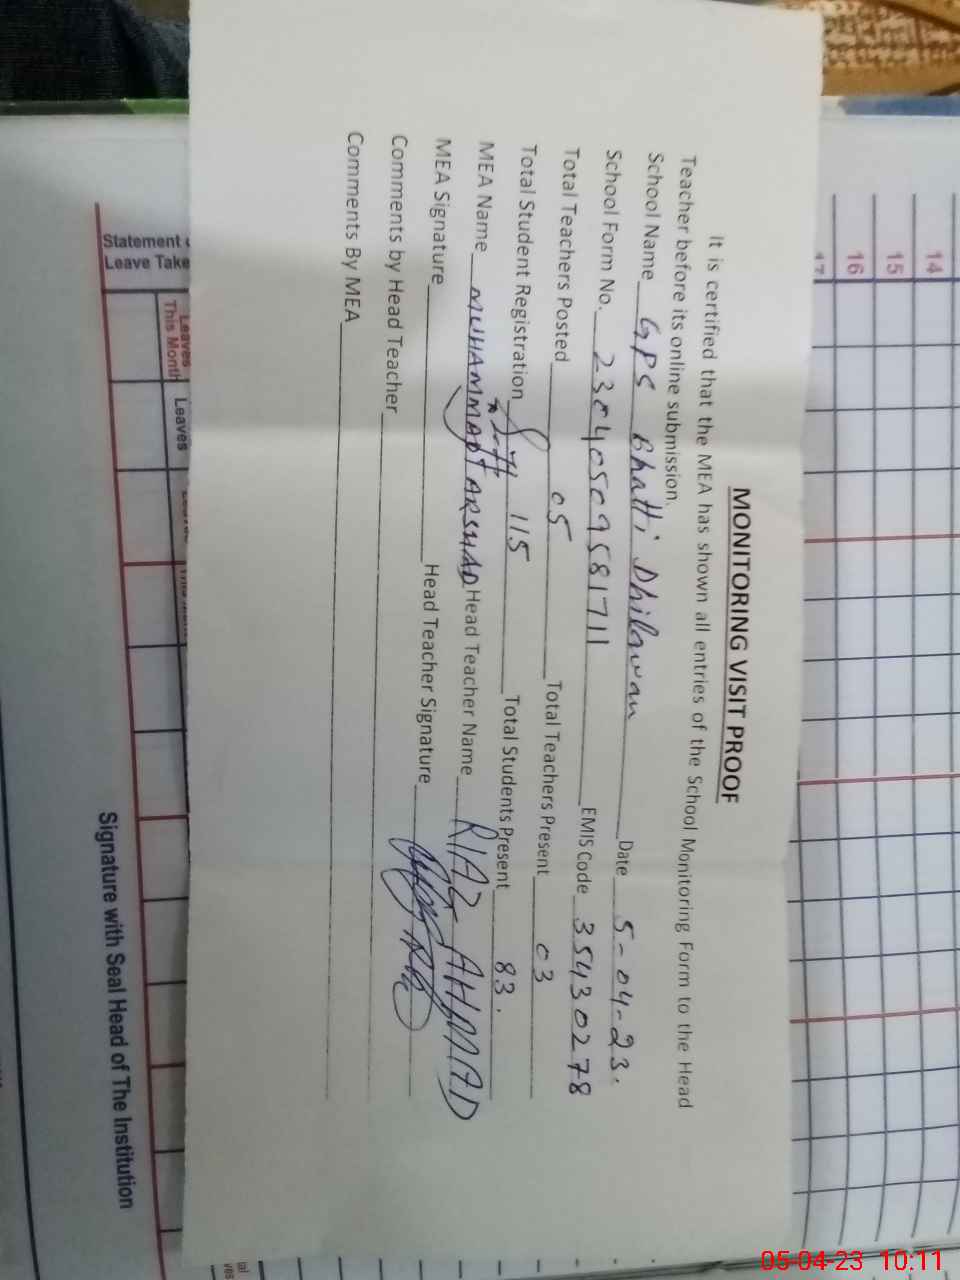 MONITORING VISIT PROOF
It is certified that the MEA has shown all entries of the School Monitoring Form to the Head
Teacher before its online submission.
School Name GPS Bhatti Dhilawan Date 5-04-23.
School Form No. 23040509581711 EMIS Code 35430278
Total Teachers Posted 05 Total Teachers Present 03
Total Student Registration 115 Total Students Present 83.
MEA Name MUHAMMAD ARSHAD Head Teacher Name RIAZ AHMAD
MEA Signature Head Teacher Signature
Comments by Head Teacher
Comments By MEA
14
15
16
17
Statement
Leave Take
Leaves
This Month
Leaves
Signature with Seal Head of The Institution
05-04-23 10:11